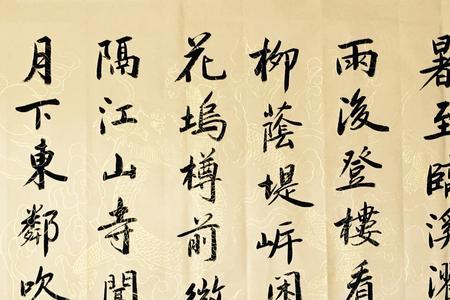 暑至臨溪濯
雨後登樓看
柳蔭堤畔閑
花塢樽前微
隔江山寺聞
月下東鄰吹